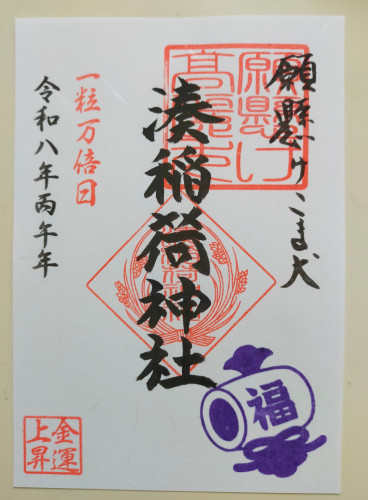 願懸けこま犬
湊稲荷神社
一粒万倍日
令和八年丙午年
福
金運
上昇